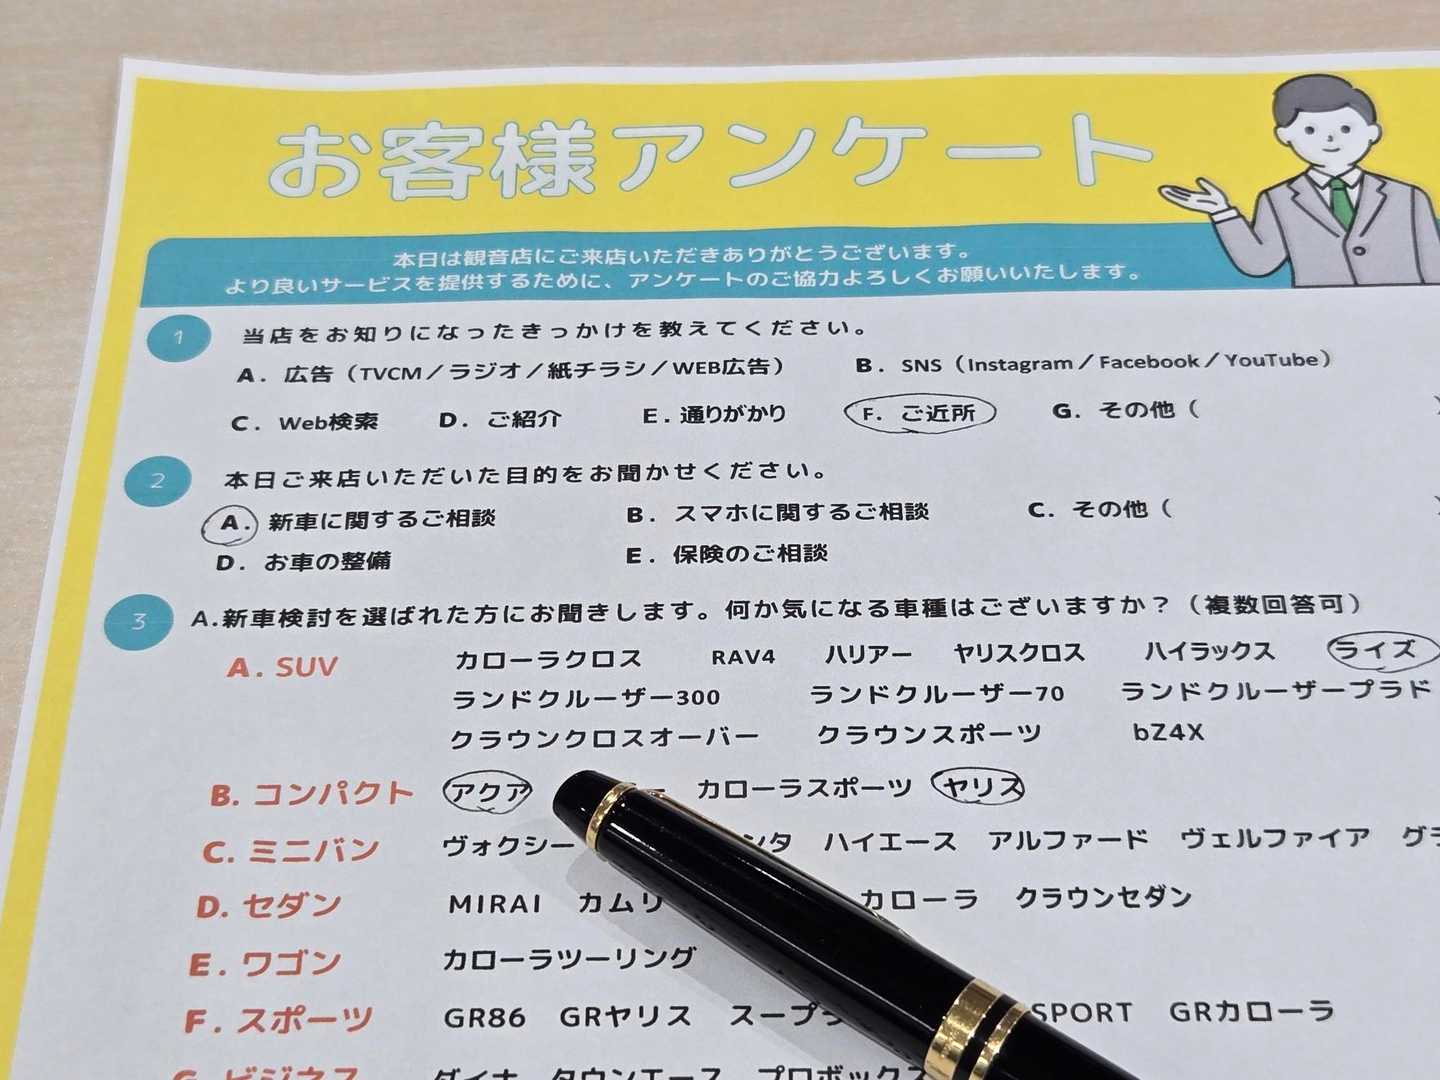 お客様アンケート
本日は観音店にご来店いただきありがとうございます。
より良いサービスを提供するために、アンケートのご協力よろしくお願いいたします。
1 当店をお知りになったきっかけを教えてください。
A. 広告（TVCM／ラジオ／紙チラシ／WEB広告） B. SNS（Instagram／Facebook／YouTube）
C. Web検索 D. ご紹介 E. 通りがかり F. ご近所 G. その他（ ）
2 本日ご来店いただいた目的をお聞かせください。
A. 新車に関するご相談 B. スマホに関するご相談 C. その他（ ）
D. お車の整備 E. 保険のご相談
3 A.新車検討を選ばれた方にお聞きします。何か気になる車種はございますか？（複数回答可）
A. SUV カローラクロス RAV4 ハリアー ヤリスクロス ハイラックス ライズ
ランドクルーザー300 ランドクルーザー70 ランドクルーザープラド
クラウンクロスオーバー クラウンスポーツ bZ4X
B. コンパクト アクア カローラスポーツ ヤリス
C. ミニバン ヴォクシー ハイエース アルファード ヴェルファイア
D. セダン MIRAI カムリ カローラ クラウンセダン
E. ワゴン カローラツーリング
F. スポーツ GR86 GRヤリス スープラ SPORT GRカローラ
G. ビジネス ダイナ タウンエース プロボックス